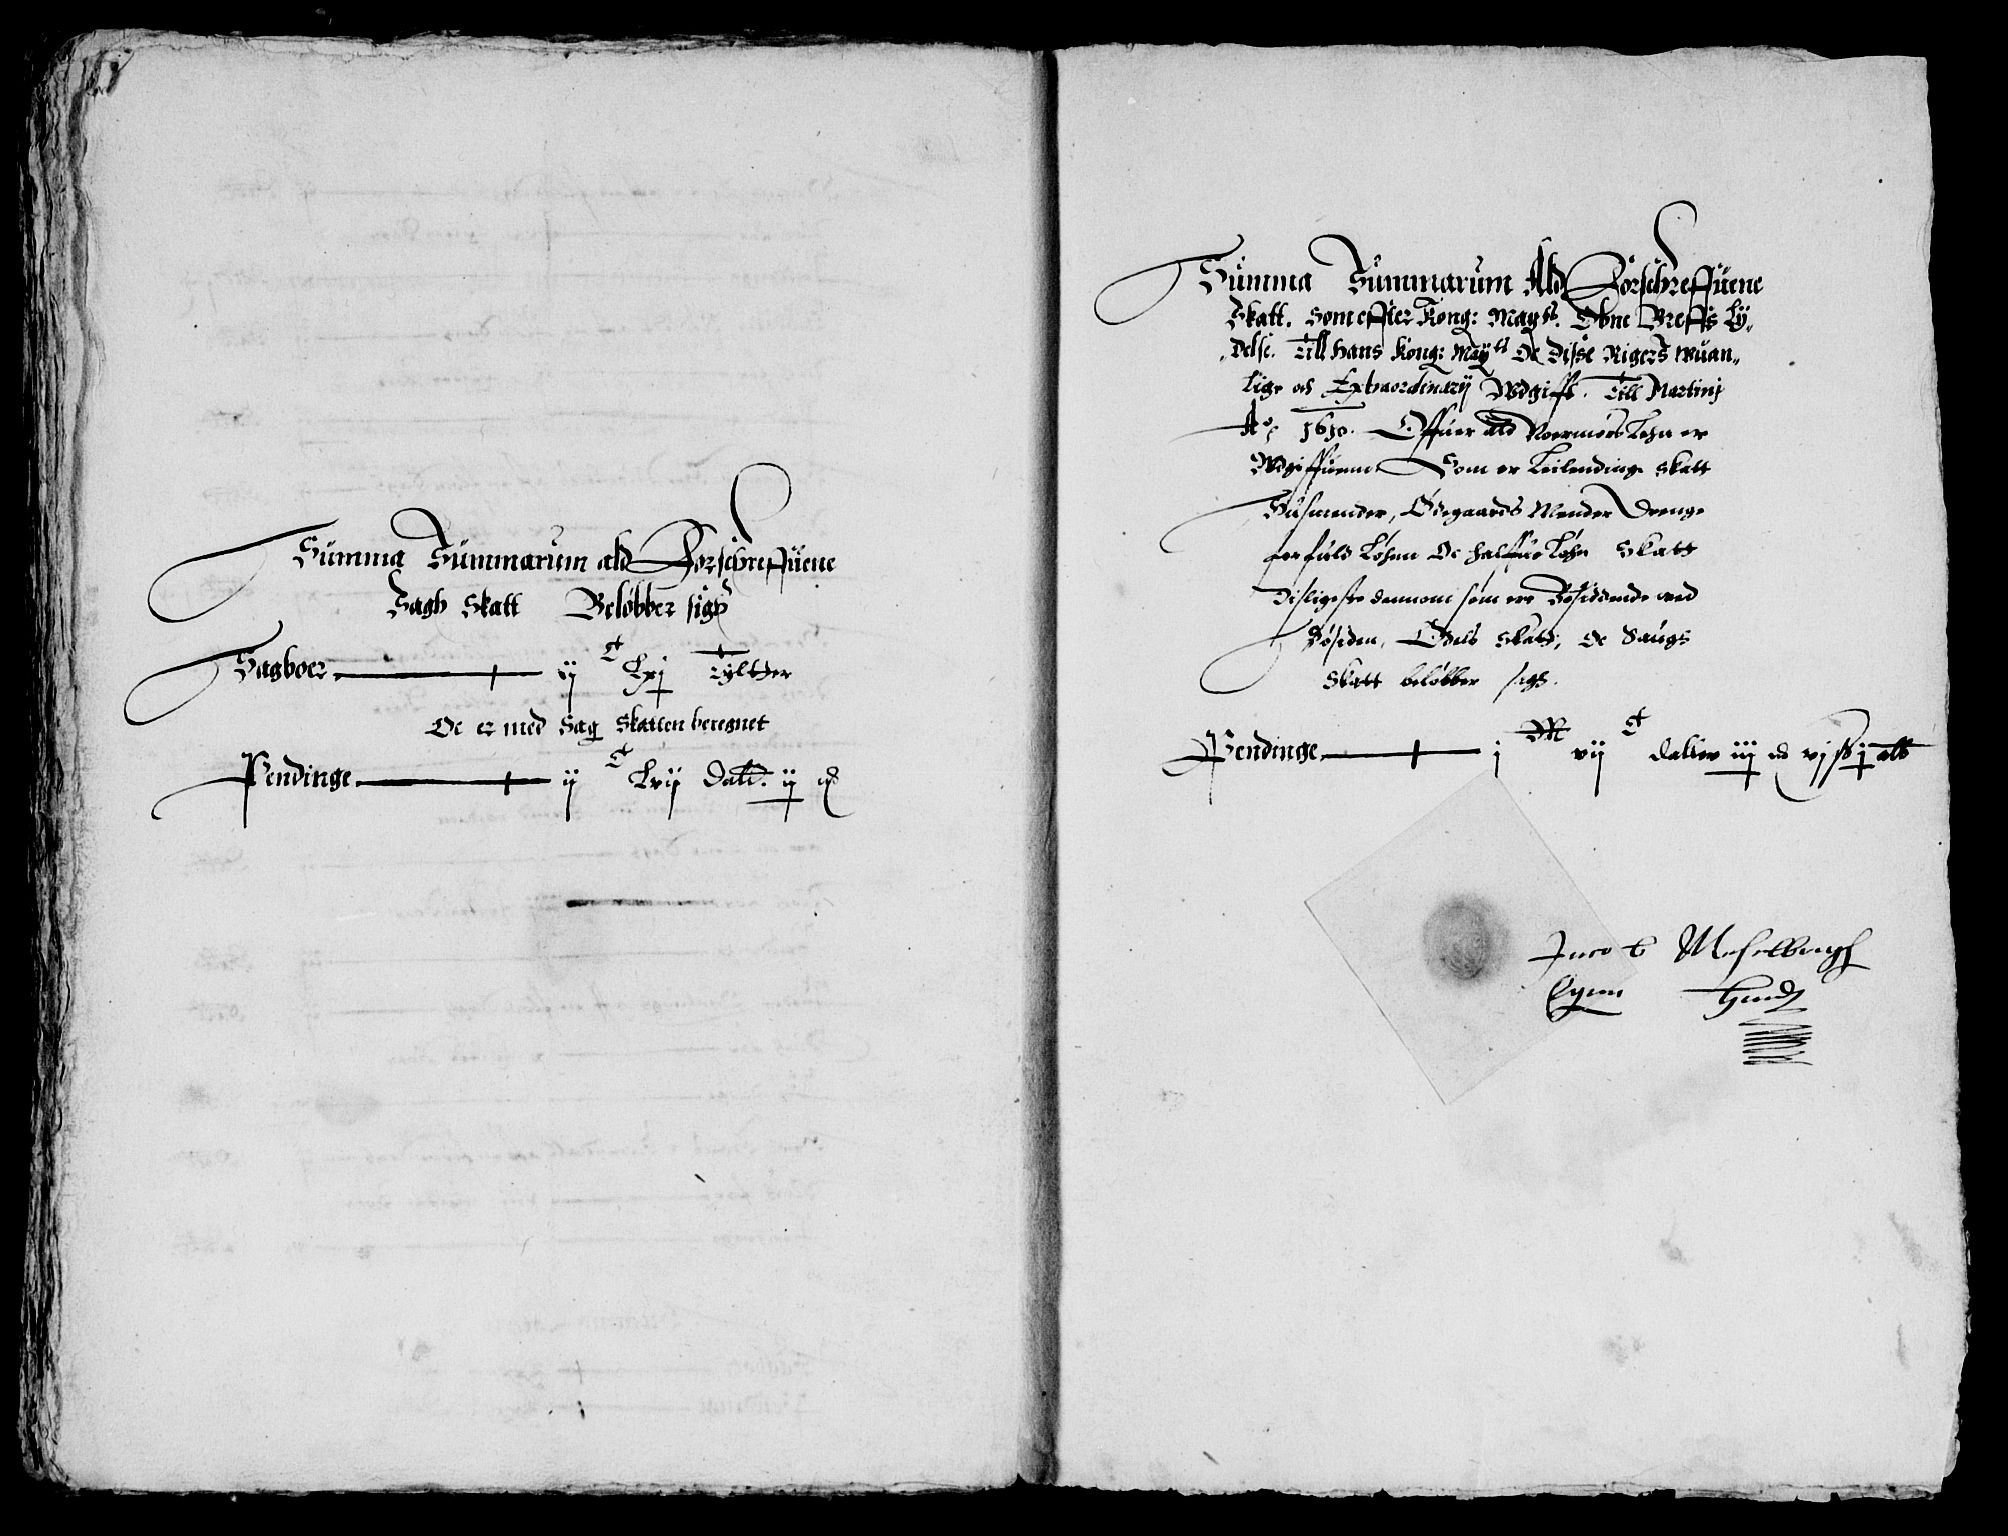 Summa Summarum ald Forschreffuene
Sagh Skatt Beløbber sigh
Sagboer ij C Lxj Tyltter
Oc er med Sag Skatten beregnet
Pendinge ij C Lxij Dald. ij
Summa Summarum Ald Forschreffuene
Skatt. Som effter Kong: Mayts. Obne Breffs Ly„
„delse. Till Hans Kong: Mayts Oc Disse Rigers wuan„
lige och Extraordinarij Wdgifft. Till Martinj
Ao 1610. Offuer ald Noermørs Lehn er
Wdgiffuenn Som er Leilendinge Skatt
Husmender, Ødegaards Mender Drenge
for fuld Løhnn Oc halffue Løhn Skatt
Disligeste dennom som ere Bosiddende wed
Søsiden, Odels Skatt, Oc Saugs
Skatt beløbber sigh.
Pendinge j M vij C daller iij vj ß j alb
Jacob
Egenn Handt